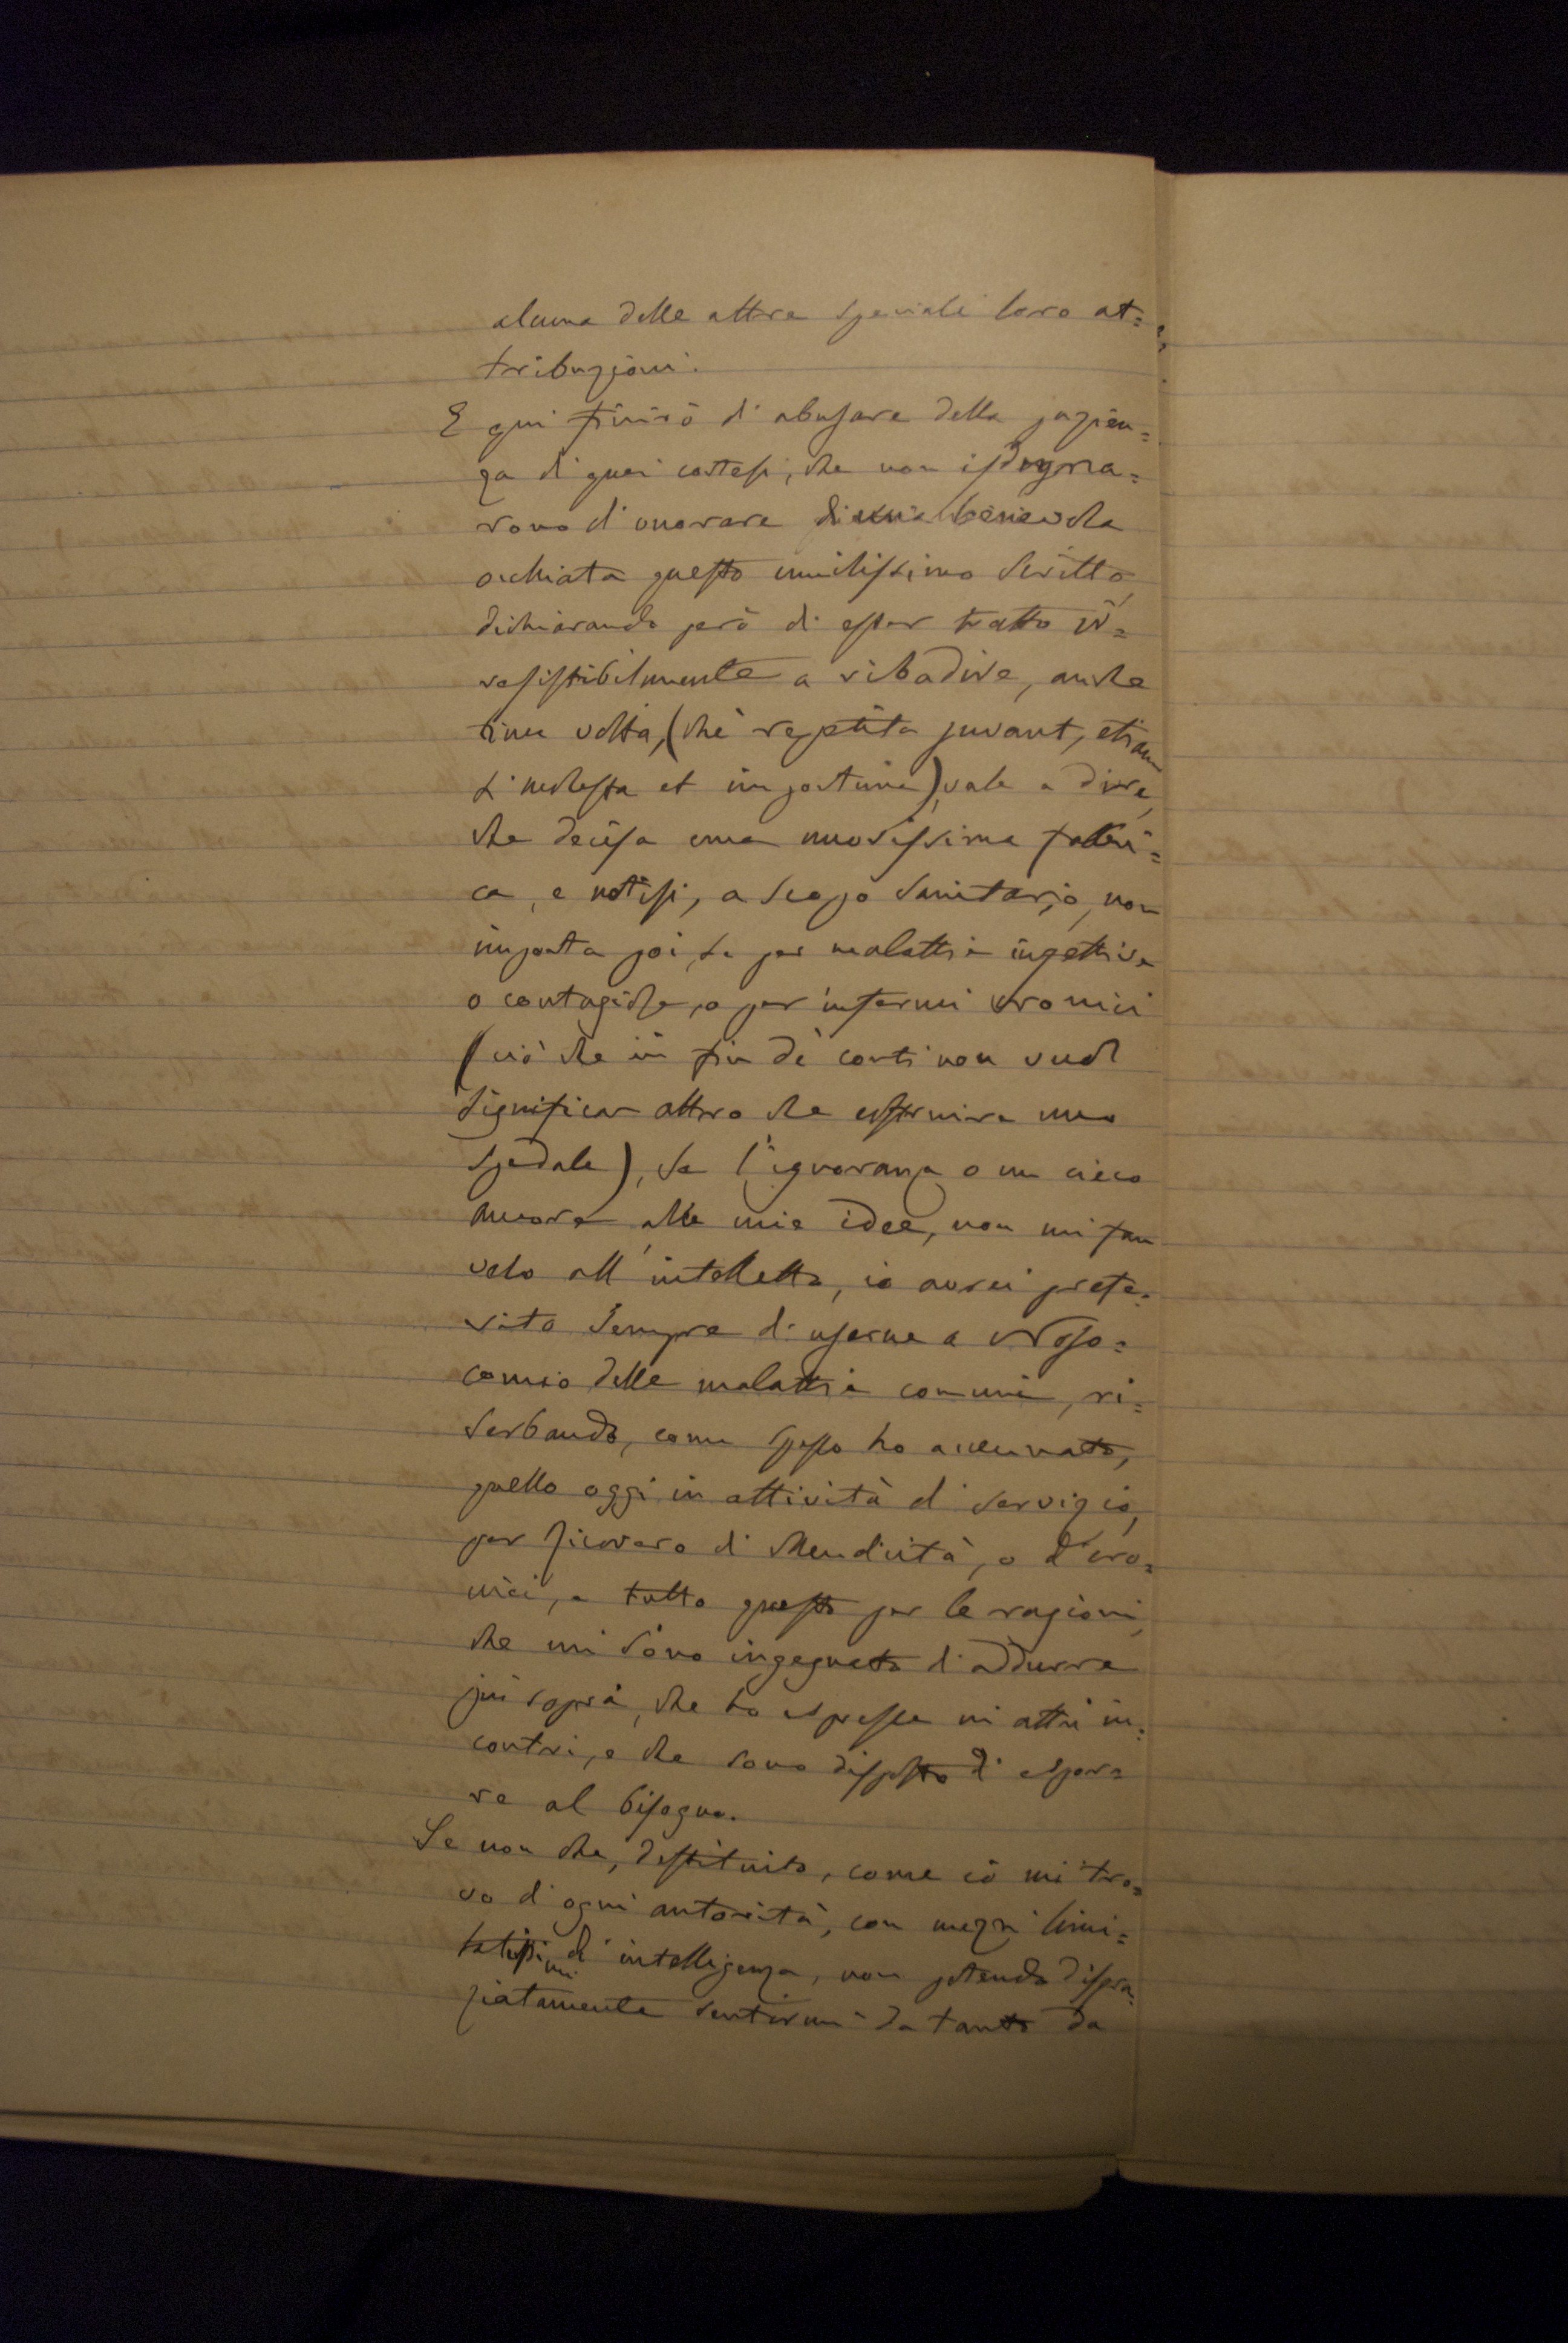 alcuna delle altre speciali loro at=
tribuzioni.
E qui finirò d'abusare della pazien=
za di quei cortesi, che non isdegna=
rono d'onorare di una benevola
occhiata questo umilissimo scritto,
dichiarando però di esser tratto ir=
resistibilmente a ribadire, anche
una volta, (chè repetita juvant, etiam
si molesta et importuna), vale a dire,
che decisa una nuovissima fabbri=
ca, e notisi, a scopo sanitario, non
importa poi, se per malattie infettive
o contagiose, o per infermi cronici
(ciò che in fin de' conti non vuol
significar altro che costruire uno
spedale), se l'ignoranza o un cieco
amore alle mie idee, non mi fan
velo all'intelletto, io avrei prefe=
rito sempre di usarne a Noso=
comio delle malattie comuni, ri=
serbando, come spesso ho accennato,
quello oggi in attività di servigio,
per Ricovero di Mendicità, o di cro=
nici, e tutto questo per le ragioni,
che mi sono ingegnato d'addurre
più sopra, che ho espresse in altri in=
contri, e che sono disposto di espor=
re al bisogno.
Se non che, destituito, come io mi tro=
vo d'ogni autorità, con mezzi limi=
tatissimi di intelligenza, non potendo disgra=
ziatamente sentirmi da tanto da